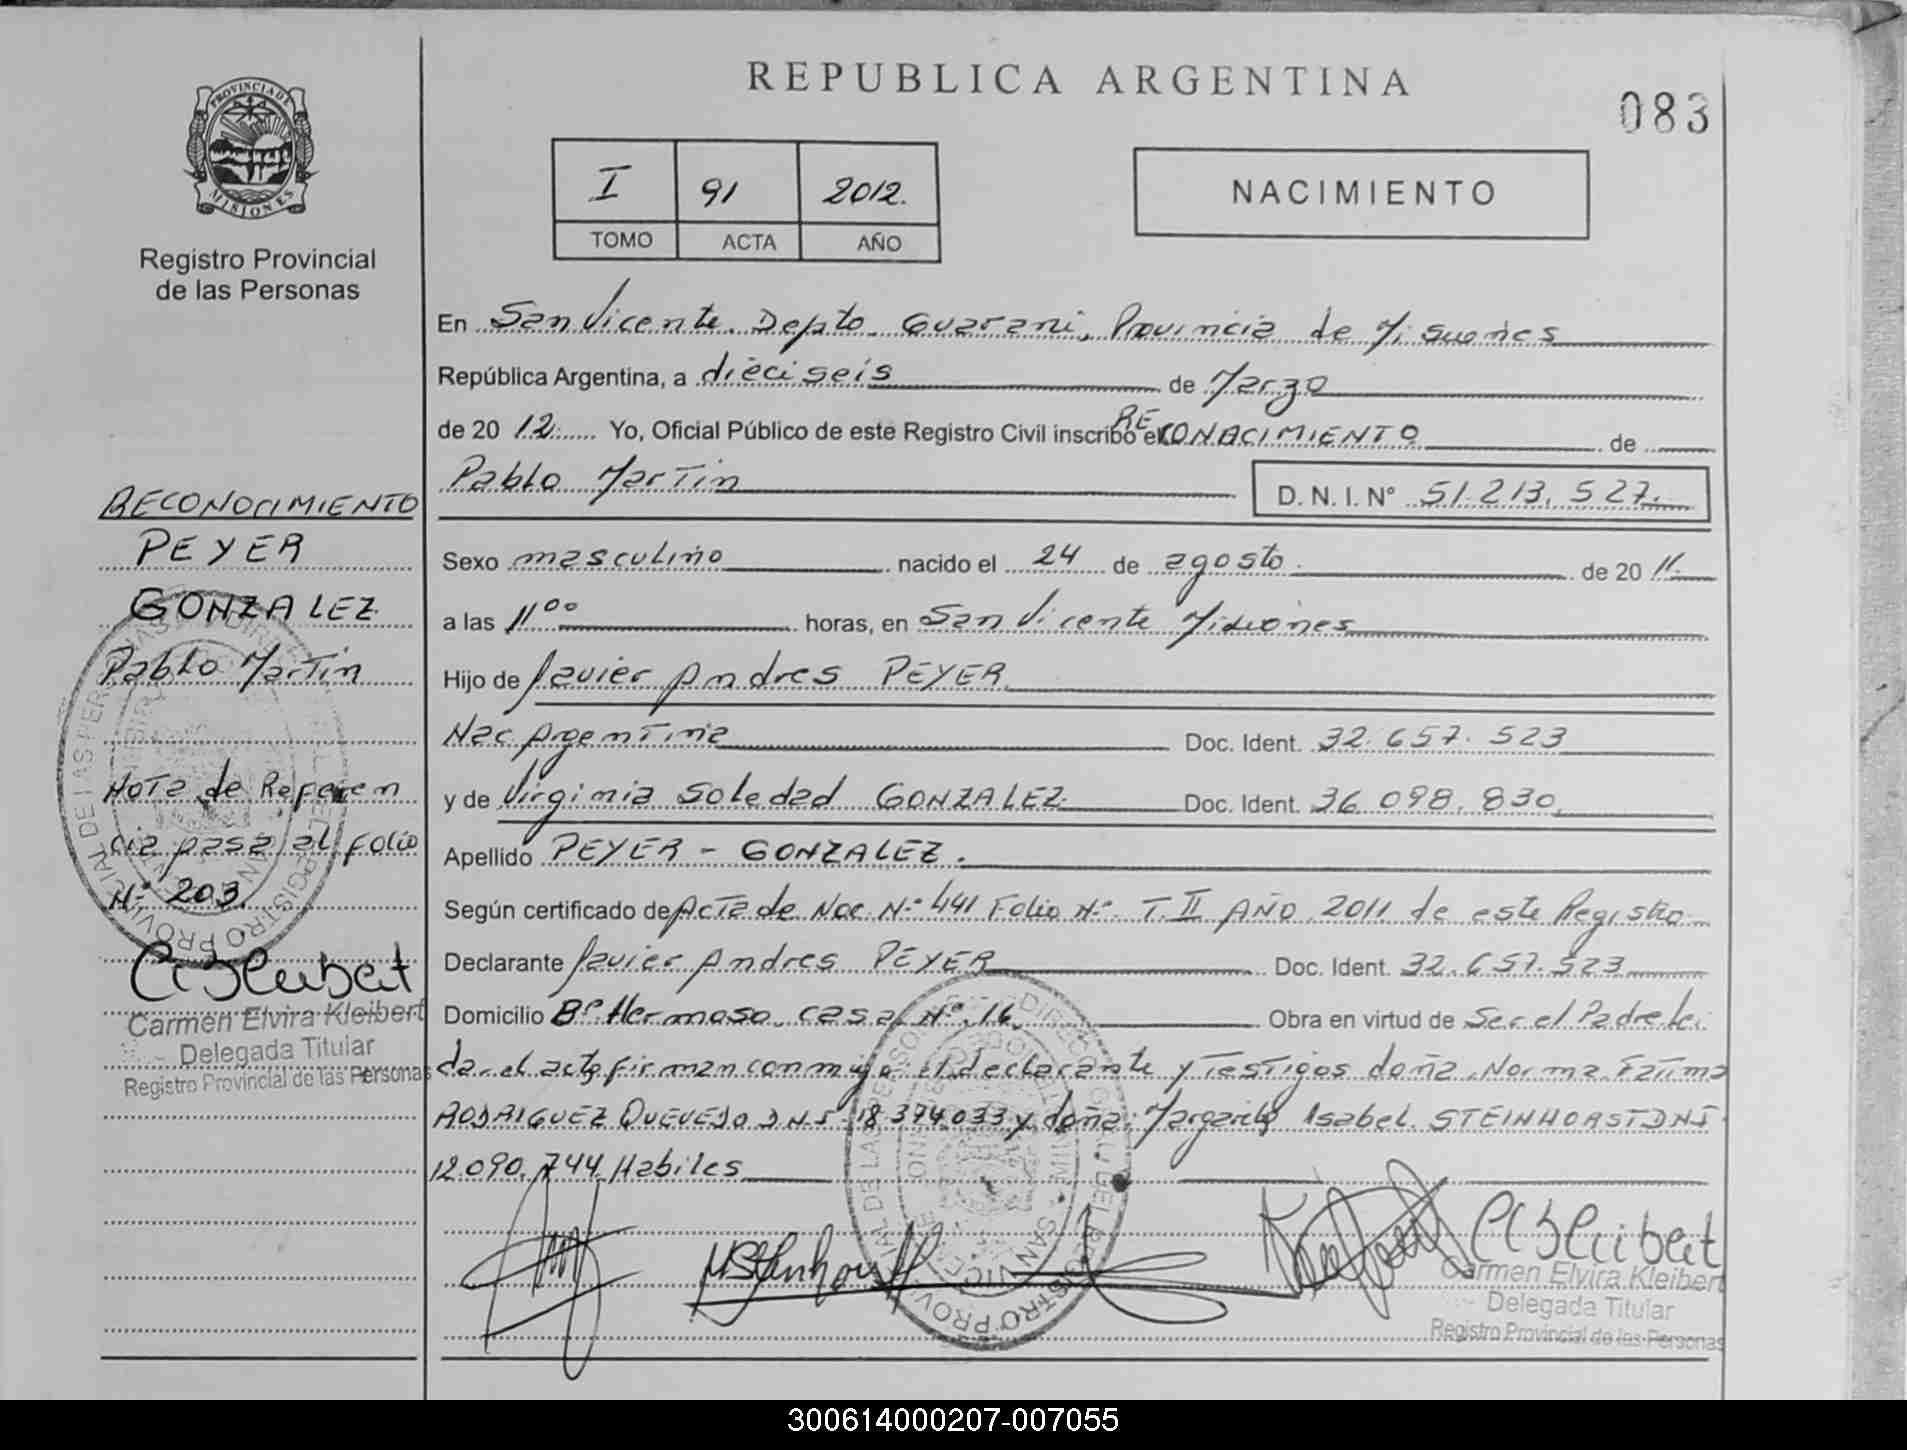 REPUBLICA ARGENTINA
083
PROVINCIA DE
MISIONES
Registro Provincial
de las Personas
I 91 2012.
TOMO ACTA AÑO
NACIMIENTO
En San Vicente Depto Guarani, Provincia de Misiones
República Argentina, a dieciseis de Marzo
de 20 12 Yo, Oficial Público de este Registro Civil inscribo el RECONACIMIENTO de
Pablo Martin D. N. I. N° 51.213.527.
Sexo masculino nacido el 24 de agosto de 20 11
a las 11°° horas, en San Vicente Misiones
Hijo de Javier Andres PEYER
Nac Argentina Doc. Ident. 32.657.523
y de Virginia Soledad GONZALEZ Doc. Ident. 36.098.830
Apellido PEYER - GONZALEZ.
Según certificado de Acta de Nac N° 441 Folio N° T. II AÑO 2011 de este Registro
Declarante Javier Andres PEYER Doc. Ident. 32.657.523
Domicilio B° Hermoso casa N° 16 Obra en virtud de Ser el Padre lei
da el acta firman conmigo el declarante y Testigos doña Norma Fatima
RODRIGUEZ QUEVEDO DNI 18.374.033 y doña Margarita Isabel STEINHORST DNI
12.090.744 Habiles
RECONOCIMIENTO
PEYER
GONZALEZ
Pablo Martin
Nota de Referen
cia pasa al folio
N° 203.
CEKleibert
Carmen Elvira Kleibert
Delegada Titular
Registro Provincial de las Personas
MISteinhorst
CEKleibert
Carmen Elvira Kleibert
Delegada Titular
Registro Provincial de las Personas
300614000207-007055